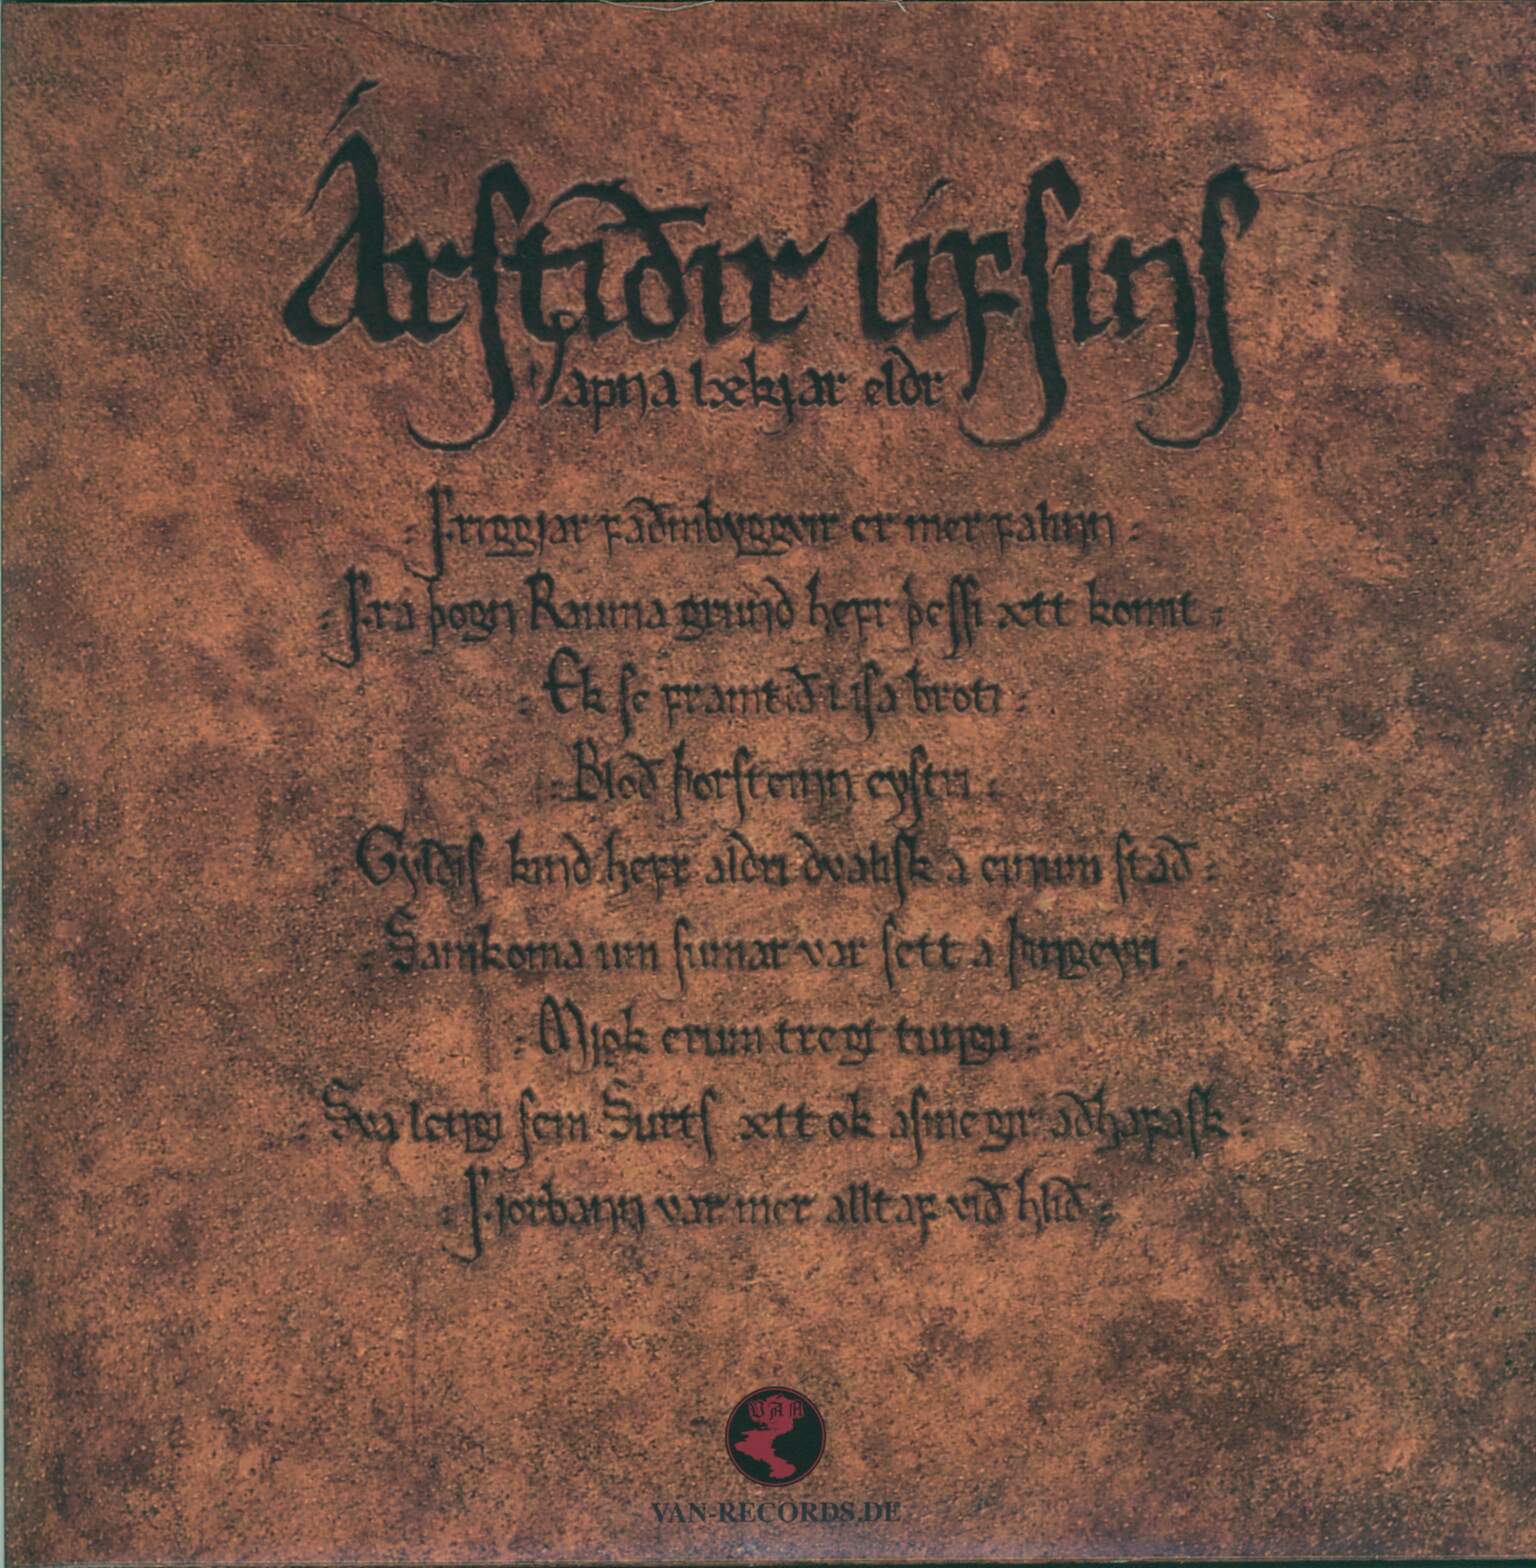 Árstíðir lífsins
Vápna lækjar eldr
: Friggjar faðmbyggvir er mer falinn :
: Fra þogn Rauma grund hefr þessi ætt komit :
: Ek se framtið i isa broti :
: Bloð Þorsteinn eystri :
: Gyldis kind hefr aldri dvalisk a einum stað :
: Samkoma um sumar var sett a Þingeyri :
: Mjok erum tregt tungu :
: Sva lengi sem Surts ætt ok asmegir aðhafask :
: Fjorbann var mer alltaf við hlið :
VAN
VAN-RECORDS.DE